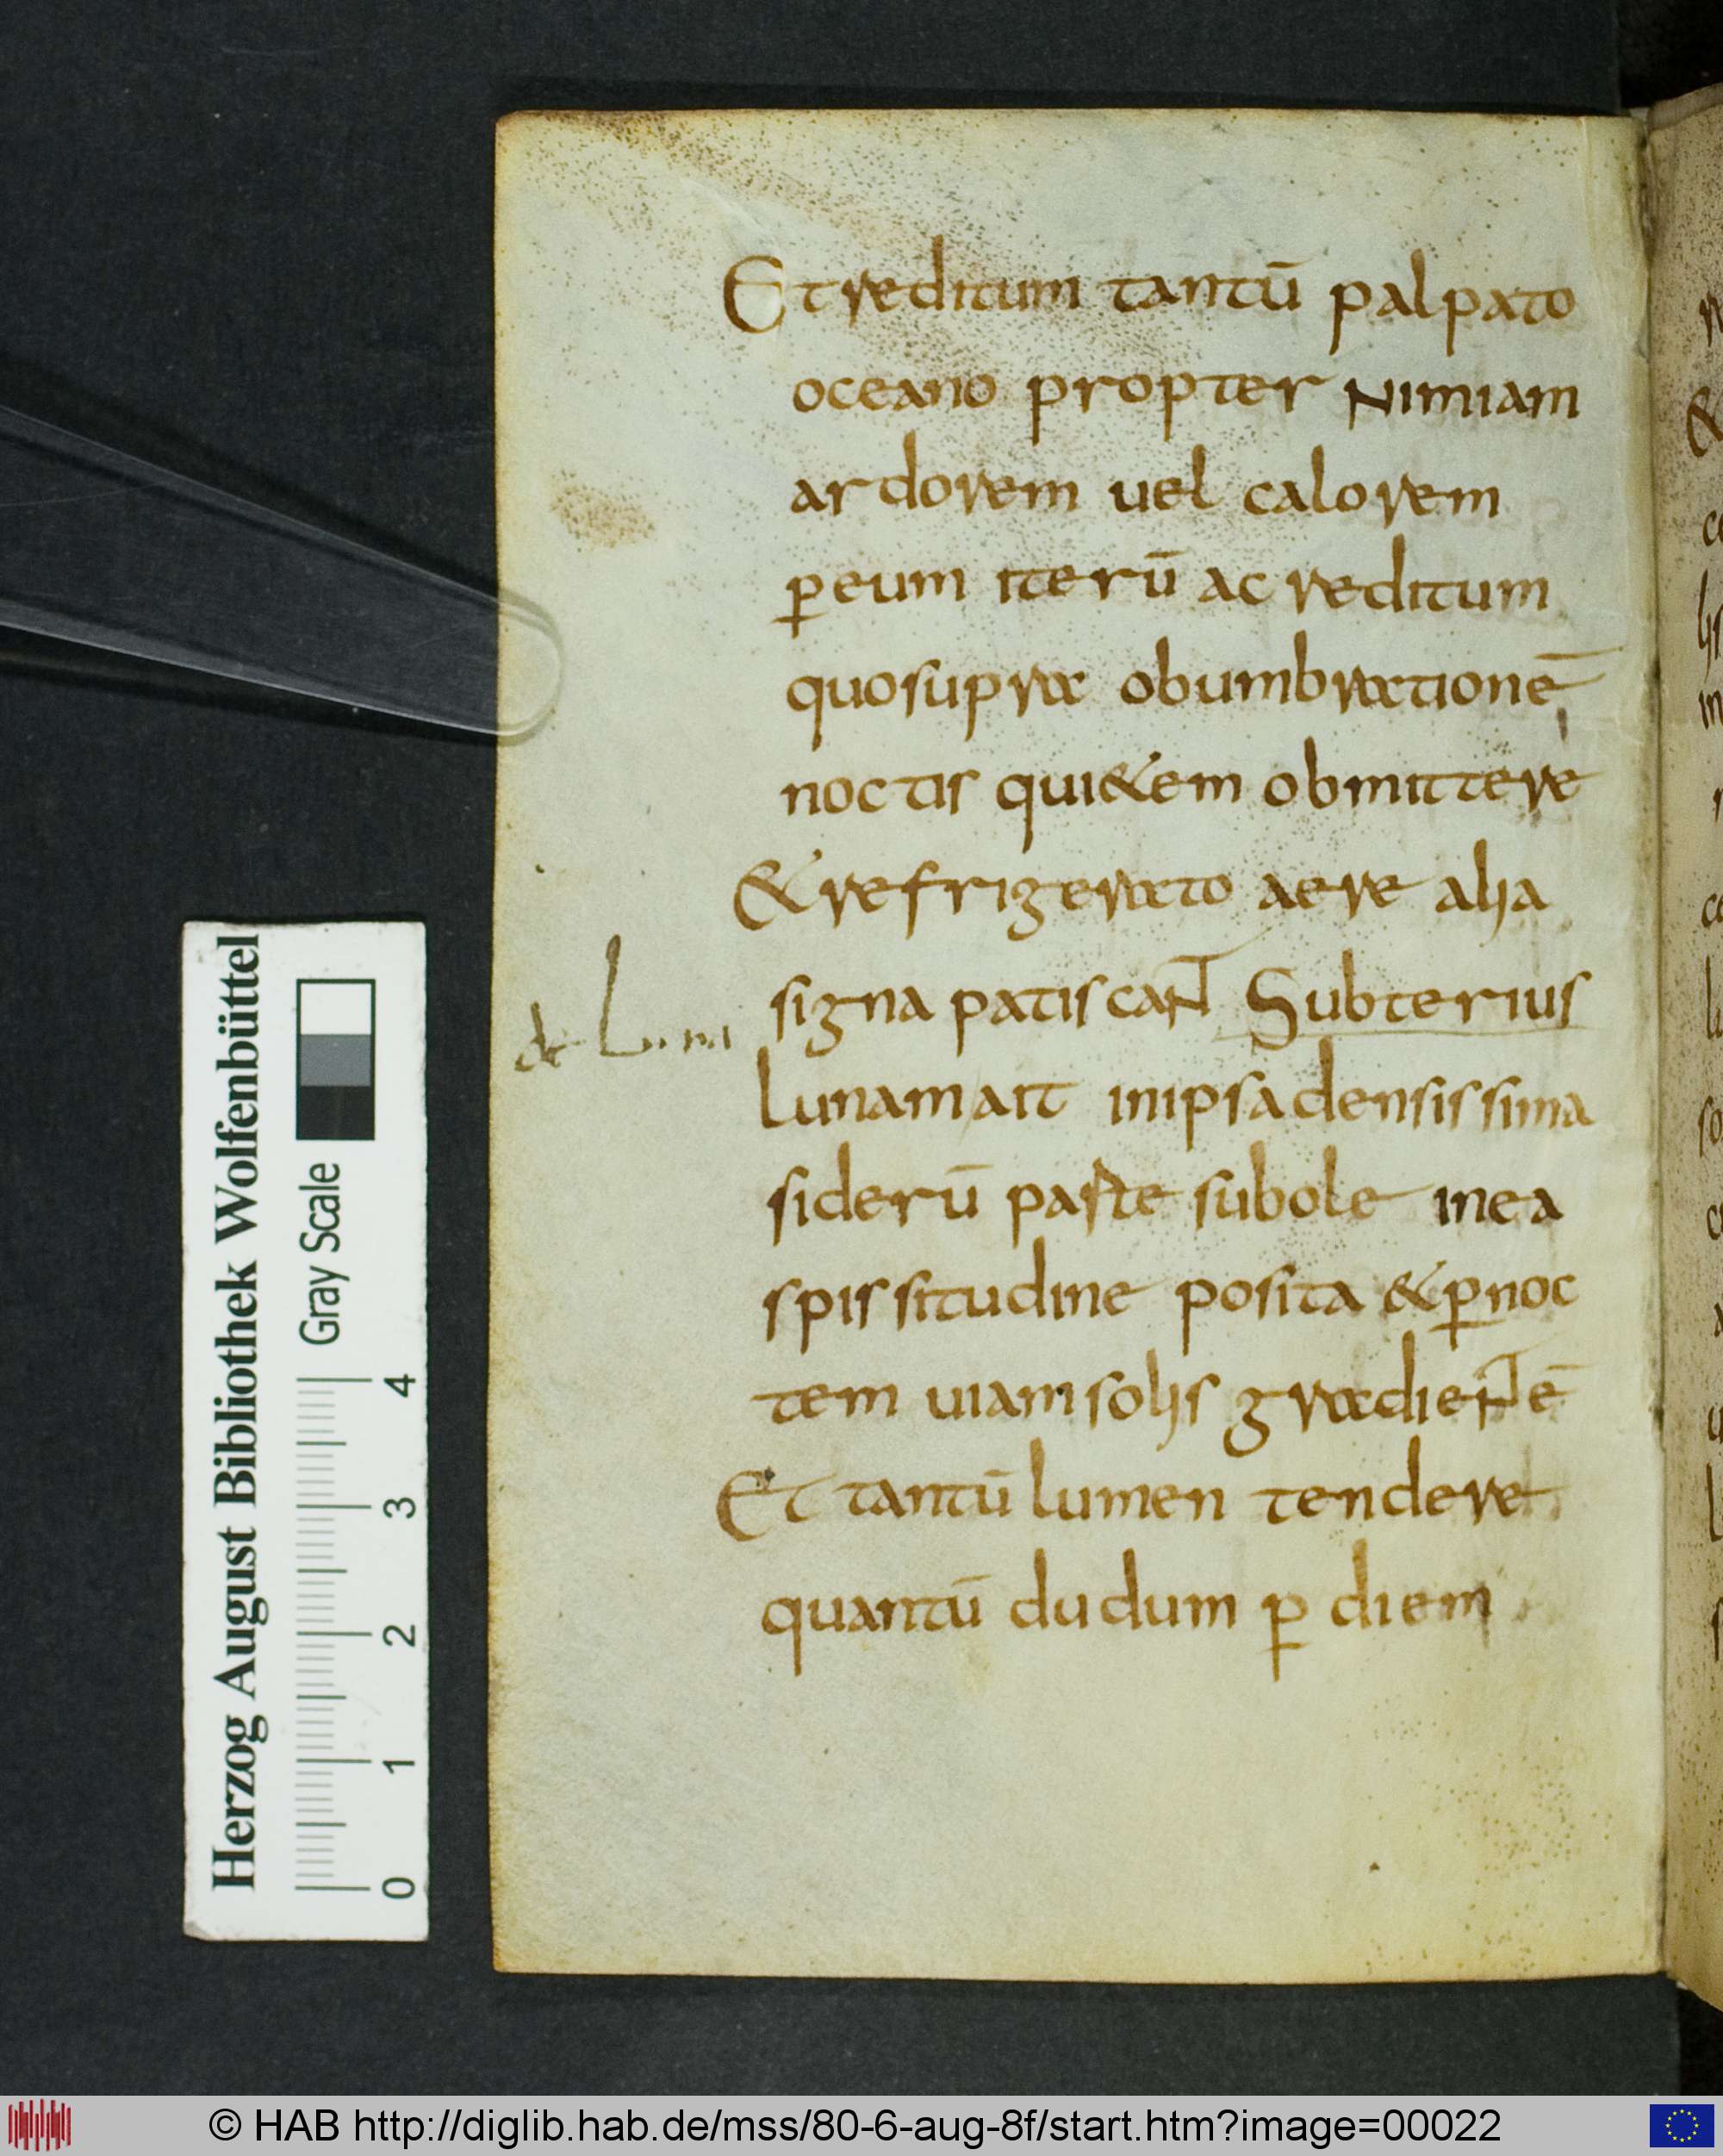 Et reditum tantū palpato
oceano propter Nimiam
ardorem uel calorem
p̱eum iterū ac reditum
quosupra obumbrationē
noctis qui&em obmittere
&refrigerato aere alia
signa patiscant Subterius
de Luna
Lunam ait inipsa densissima
siderū paste subole in ea
spissitudine posita &p̱noc
tem uiam solis gradientē
Et tantū lumen tendere
quantū dudum p̱ diem
Herzog August Bibliothek Wolfenbüttel
Gray Scale
0 1 2 3 4
© HAB http://diglib.hab.de/mss/80-6-aug-8f/start.htm?image=00022